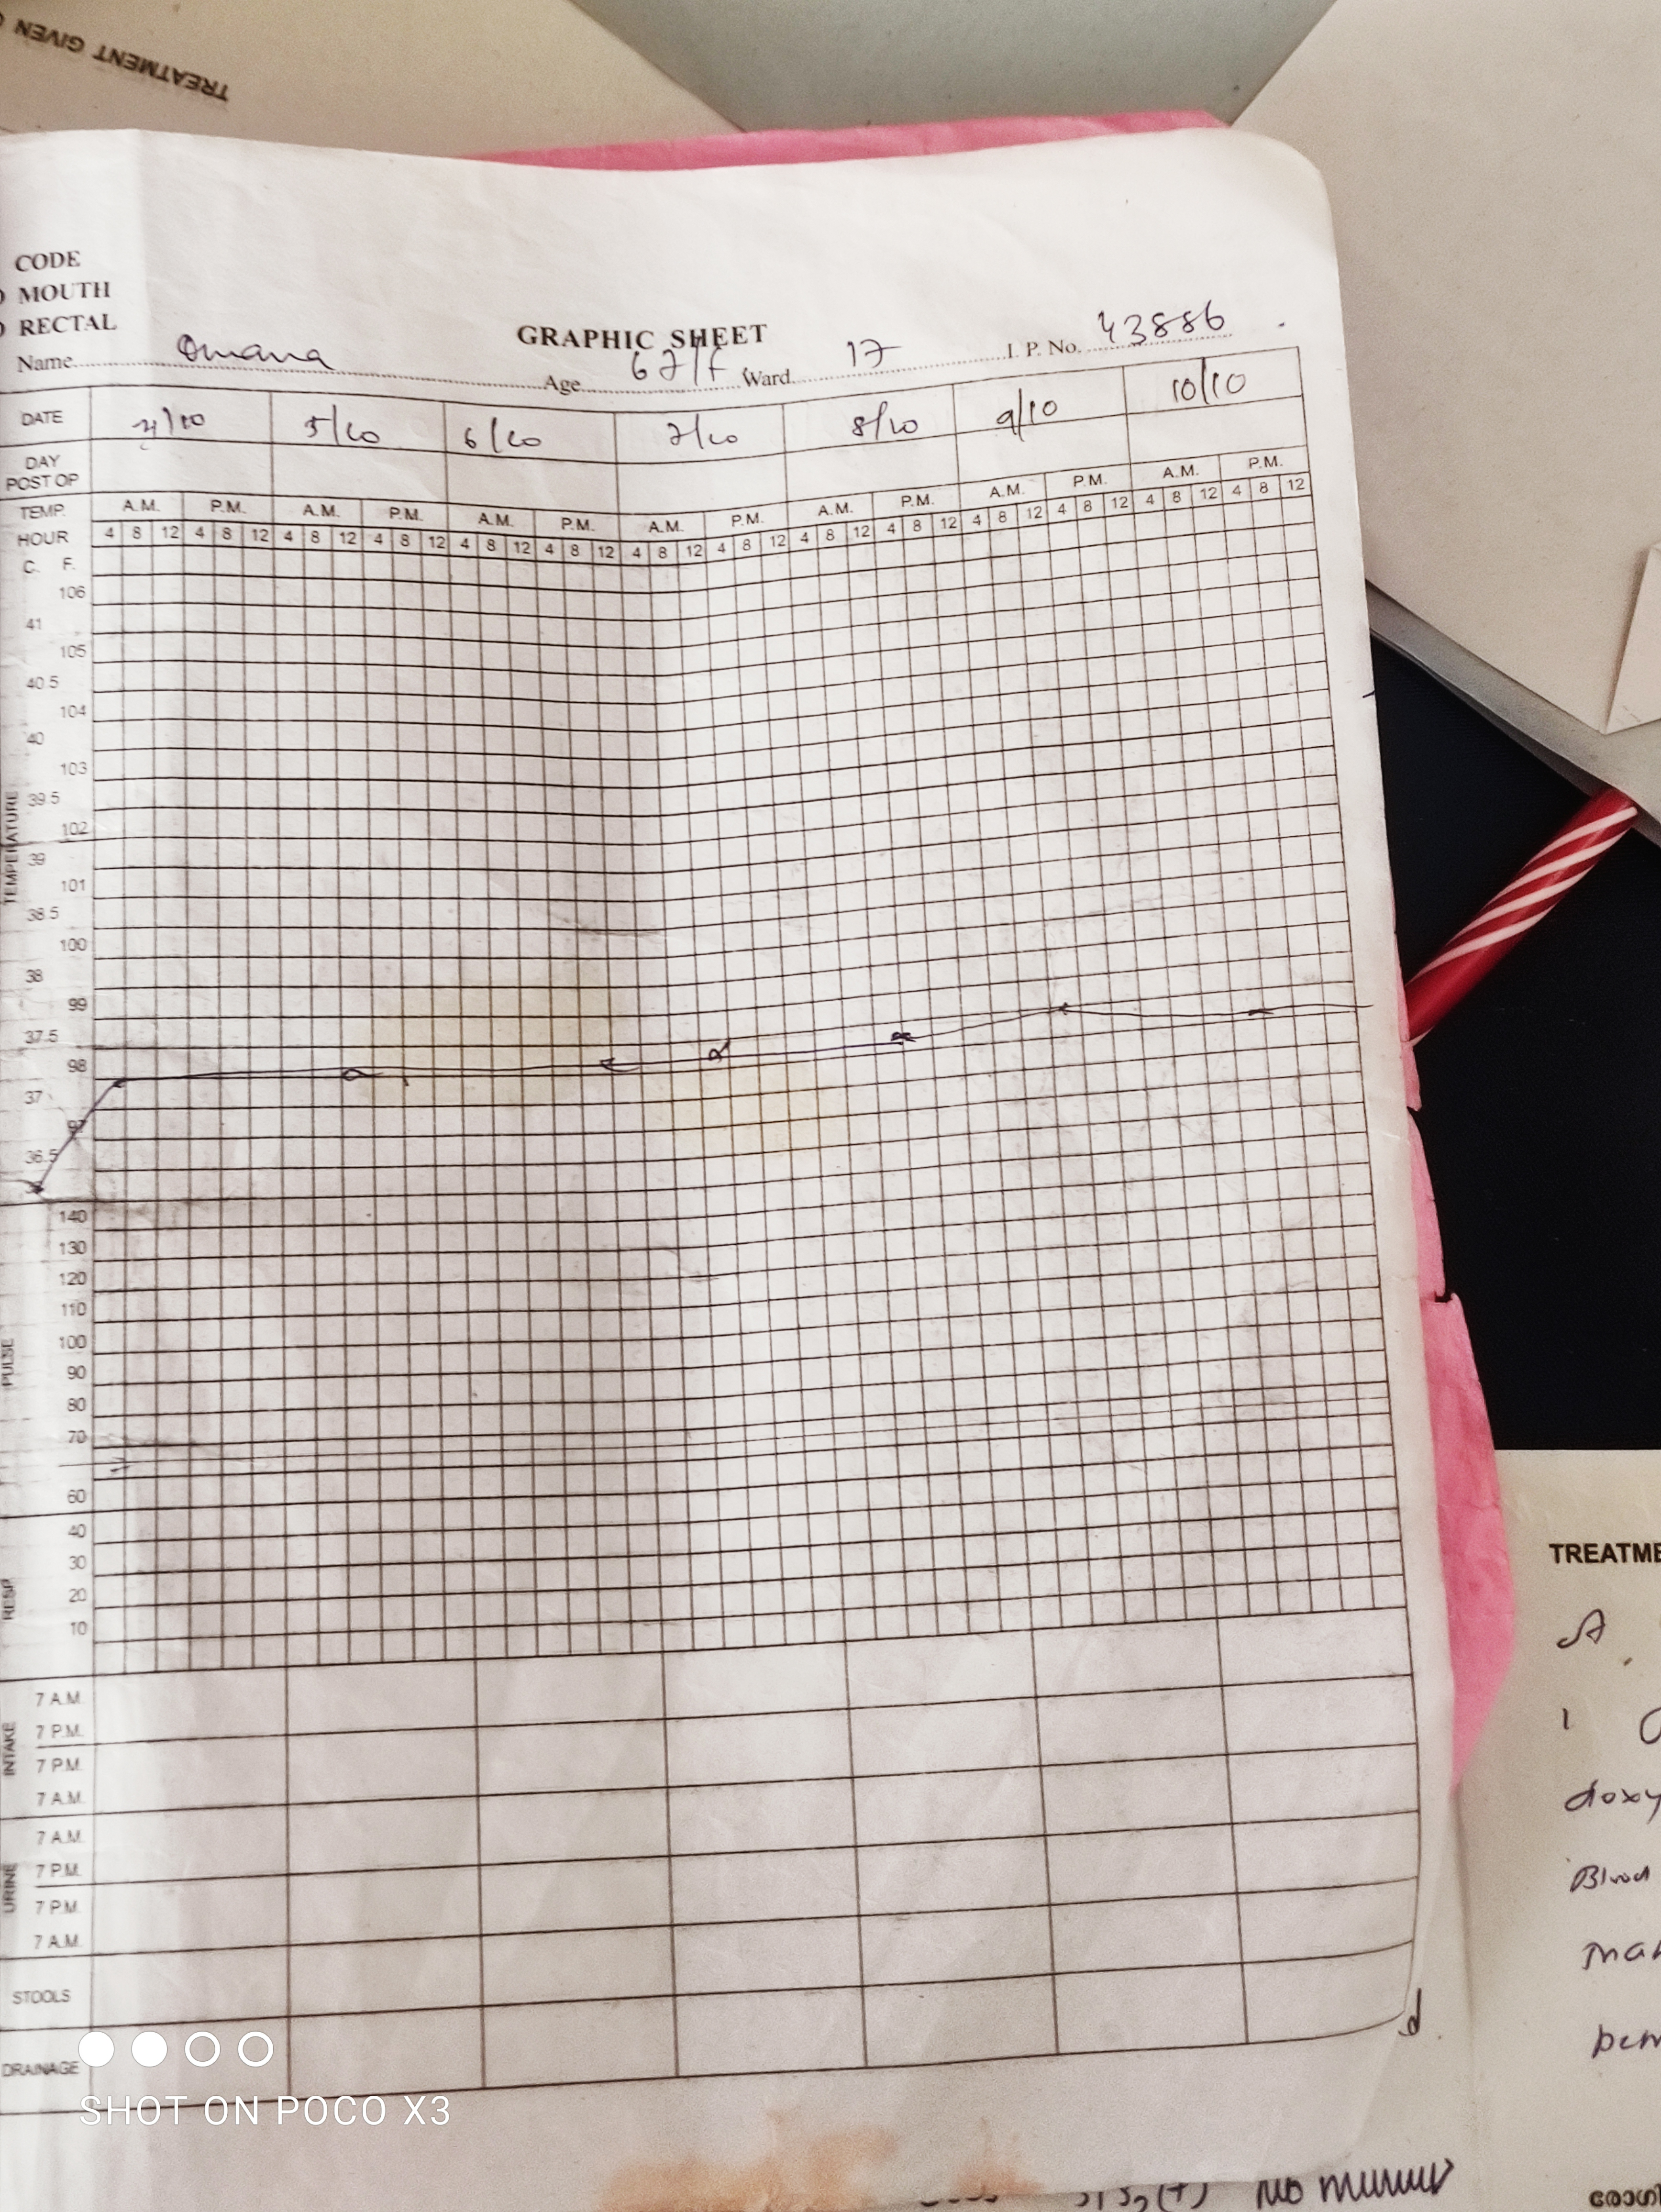 TREATMENT GIVEN
CODE
MOUTH
RECTAL
GRAPHIC SHEET
Name Omana Age 67/F Ward 17 I. P. No. 43886
DATE 4/10 5/10 6/10 7/10 8/10 9/10 10/10
DAY
POST OP
TEMP. A.M. P.M. A.M. P.M. A.M. P.M. A.M. P.M. A.M. P.M. A.M. P.M. A.M. P.M.
HOUR 4 8 12 4 8 12 4 8 12 4 8 12 4 8 12 4 8 12 4 8 12 4 8 12 4 8 12 4 8 12 4 8 12 4 8 12 4 8 12 4 8 12
C. F.
106
41
105
40.5
104
40
103
39.5
102
39
101
38.5
100
38
99
37.5
98
37
97
36.5
TEMPERATURE
140
130
120
110
100
90
80
70
60
PULSE
40
30
20
10
RESP
7 A.M.
7 P.M.
7 P.M.
7 A.M.
INTAKE
7 A.M.
7 P.M.
7 P.M.
7 A.M.
URINE
STOOLS
DRAINAGE
SHOT ON POCO X3
TREATME
doxy
Blood
S1S2(+) No murmur